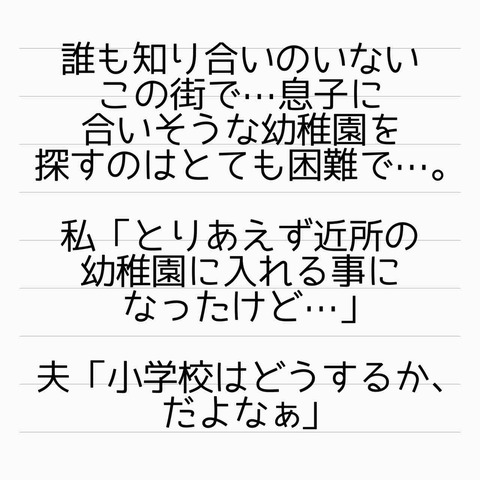 誰も知り合いのいない
この街で…息子に
合いそうな幼稚園を
探すのはとても困難で…。
私「とりあえず近所の
幼稚園に入れる事に
なったけど…」
夫「小学校はどうするか、
だよなぁ」